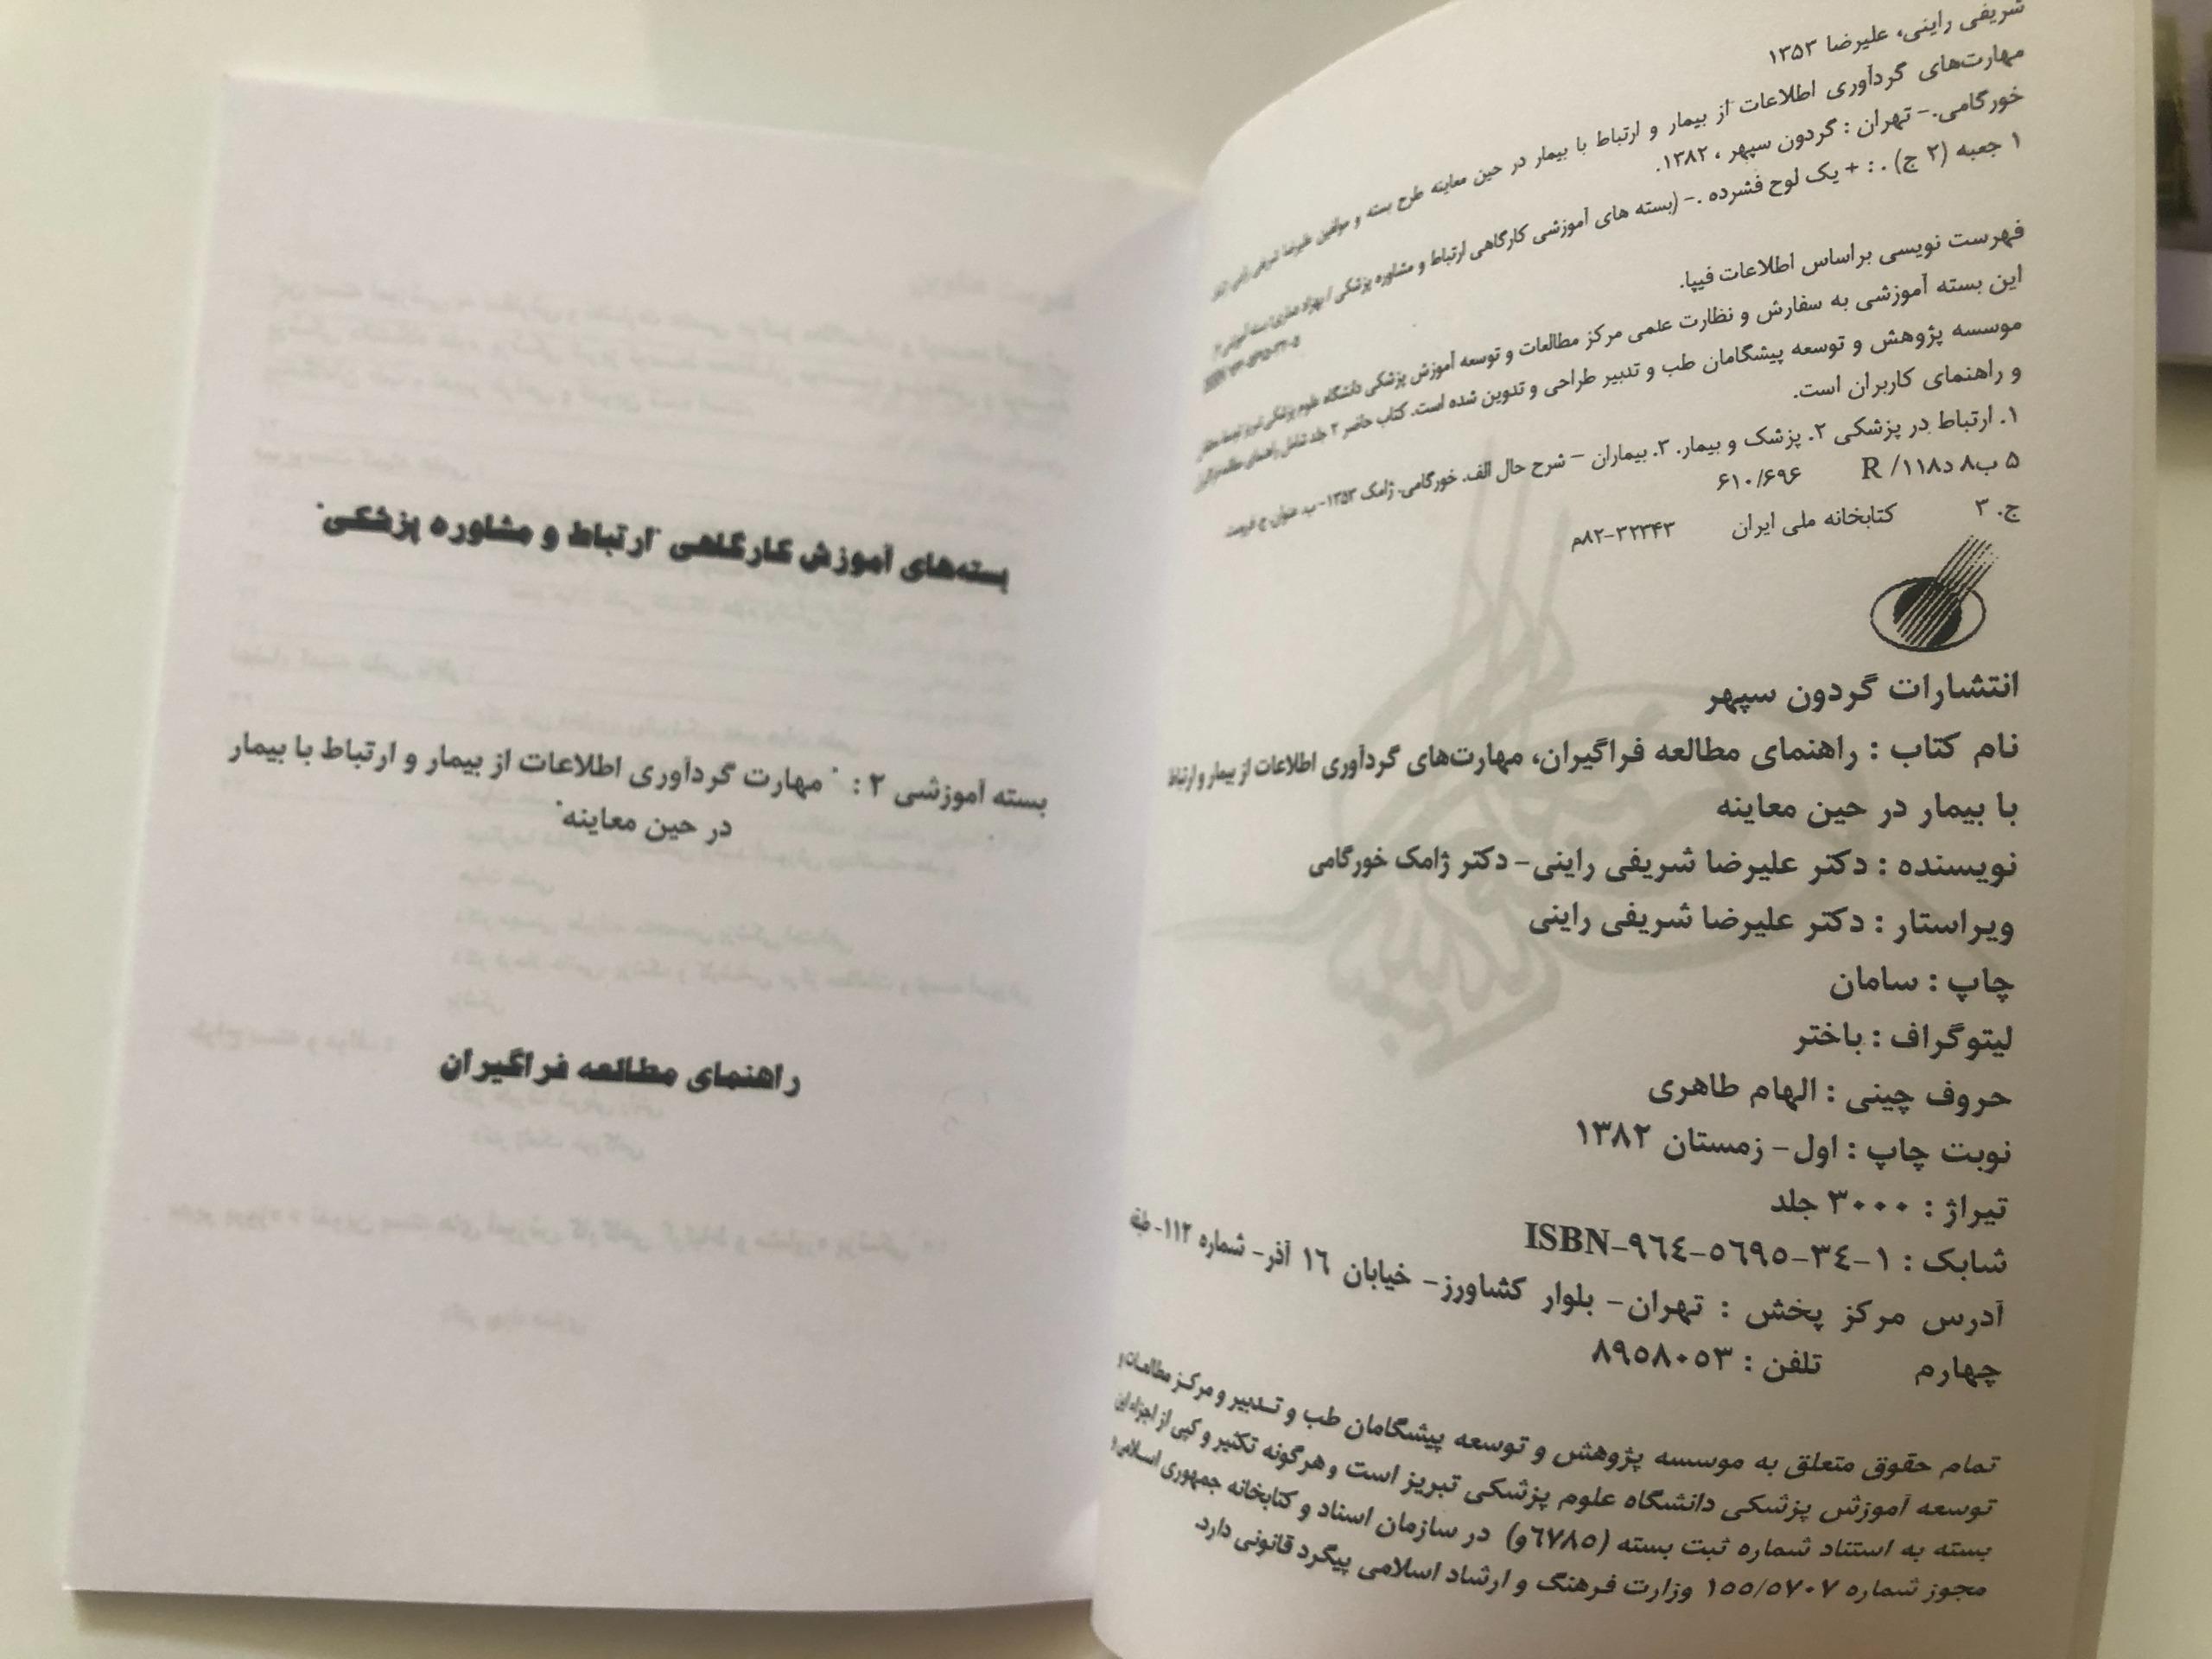 شریفی راینی، علیرضا ۱۳۵۳
مهارت‌های گردآوری اطلاعات از بیمار و ارتباط با بیمار در حین معاینه طرح بسته و مولفین علیرضا شریفی راینی، ژامک
خورگامی.- تهران : گردون سپهر ، ۱۳۸۲.
۱ جعبه (۲ ج) . : + یک لوح فشرده .- (بسته های آموزشی کارگاهی ارتباط و مشاوره پزشکی /
فهرست نویسی براساس اطلاعات فیپا.
این بسته آموزشی به سفارش و نظارت علمی مرکز مطالعات و توسعه آموزش پزشکی دانشگاه علوم پزشکی تبریز توسط
موسسه پژوهش و توسعه پیشگامان طب و تدبیر طراحی و تدوین شده است. کتاب حاضر ۲ جلد شامل راهنمای مطالعه فراگیران
و راهنمای کاربران است.
۱. ارتباط در پزشکی ۲. پزشک و بیمار. ۳. بیماران – شرح حال الف. خورگامی، ژامک ۱۳۵۳- ب. عنوان. ج. فهرست.
۵ ب۸ د۱۱۸/ R ۶۱۰/۶۹۶
ج. ۳ کتابخانه ملی ایران ۸۲-۳۲۳۴۳م
انتشارات گردون سپهر
نام کتاب : راهنمای مطالعه فراگیران، مهارت‌های گردآوری اطلاعات از بیمار و ارتباط
با بیمار در حین معاینه
نویسنده : دکتر علیرضا شریفی راینی- دکتر ژامک خورگامی
ویراستار : دکتر علیرضا شریفی راینی
چاپ : سامان
لیتوگراف : باختر
حروف چینی : الهام طاهری
نوبت چاپ : اول- زمستان ۱۳۸۲
تیراژ : ۳۰۰۰ جلد
شابک : ۱-۳٤-٥٦٩٥-٩٦٤-ISBN
آدرس مرکز پخش : تهران- بلوار کشاورز- خیابان ۱٦ آذر- شماره ۱۱۲- طبقه
چهارم تلفن : ۸۹٥۸۰٥۳
تمام حقوق متعلق به موسسه پژوهش و توسعه پیشگامان طب و تدبیر و مرکز مطالعات و
توسعه آموزش پزشکی دانشگاه علوم پزشکی تبریز است و هرگونه تکثیر و کپی از اجزاء این
بسته به استناد شماره ثبت بسته (٦٧٨٥و) در سازمان اسناد و کتابخانه جمهوری اسلامی و
مجوز شماره ١٥٥/٥٧٠٧ وزارت فرهنگ و ارشاد اسلامی پیگرد قانونی دارد.
بسته‌های آموزش کارگاهی "ارتباط و مشاوره پزشکی"
بسته آموزشی ۲ : " مهارت گردآوری اطلاعات از بیمار و ارتباط با بیمار
در حین معاینه"
راهنمای مطالعه فراگیران